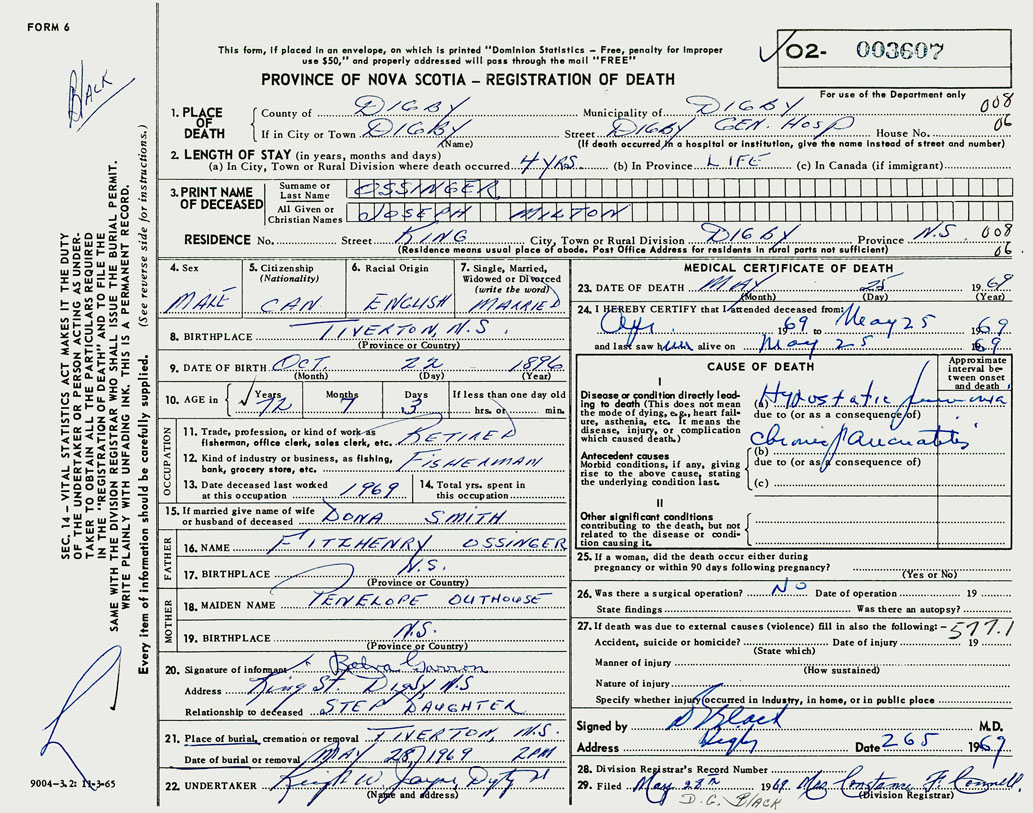 FORM 6
This form, if placed in an envelope, on which is printed "Dominion Statistics – Free, penalty for improper
use $50," and properly addressed will pass through the mail "FREE"
PROVINCE OF NOVA SCOTIA – REGISTRATION OF DEATH
02- 003607
For use of the Department only
008
06
Black
SEC. 14 – VITAL STATISTICS ACT MAKES IT THE DUTY
OF THE UNDERTAKER OR PERSON ACTING AS UNDER-
TAKER TO OBTAIN ALL THE PARTICULARS REQUIRED
IN THE "REGISTRATION OF DEATH" AND TO FILE THE
SAME WITH THE DIVISION REGISTRAR WHO SHALL ISSUE THE BURIAL PERMIT.
WRITE PLAINLY WITH UNFADING INK. THIS IS A PERMANENT RECORD.
Every item of information should be carefully supplied. (See reverse side for instructions.)
9004-3.2: 11-3-65
1. PLACE OF DEATH
County of DIGBY Municipality of DIGBY
If in City or Town DIGBY Street DIGBY GEN. HOSP House No.
(Name) (If death occurred in a hospital or institution, give the name instead of street and number)
2. LENGTH OF STAY (in years, months and days)
(a) In City, Town or Rural Division where death occurred 4 YRS. (b) In Province LIFE (c) In Canada (if immigrant)
3. PRINT NAME OF DECEASED
Surname or Last Name OSSINGER
All Given or Christian Names JOSEPH MILTON
RESIDENCE No. Street KING City, Town or Rural Division DIGBY Province N.S. 008
(Residence means usual place of abode. Post Office Address for residents in rural parts not sufficient) 06
4. Sex MALE
5. Citizenship (Nationality) CAN
6. Racial Origin ENGLISH
7. Single, Married, Widowed or Divorced (write the word) MARRIED
8. BIRTHPLACE TIVERTON, N.S.
(Province or Country)
9. DATE OF BIRTH OCT. 22 1896
(Month) (Day) (Year)
10. AGE in Years 72 Months 7 Days 3 If less than one day old hrs. or min.
OCCUPATION
11. Trade, profession, or kind of work as fisherman, office clerk, sales clerk, etc. RETIRED
12. Kind of industry or business, as fishing, bank, grocery store, etc. FISHERMAN
13. Date deceased last worked at this occupation 1969
14. Total yrs. spent in this occupation
15. If married give name of wife or husband of deceased DONA SMITH
FATHER
16. NAME FITZHENRY OSSINGER
17. BIRTHPLACE N.S.
(Province or Country)
MOTHER
18. MAIDEN NAME PENELOPE OUTHOUSE
19. BIRTHPLACE N.S.
(Province or Country)
20. Signature of informant Belva
Address King St. Digby N.S
Relationship to deceased STEP DAUGHTER
21. Place of burial, cremation or removal TIVERTON, N.S.
Date of burial or removal MAY 28, 1969 2PM
22. UNDERTAKER W. Jayne,
(Name and address)
MEDICAL CERTIFICATE OF DEATH
23. DATE OF DEATH MAY 25 1969
(Month) (Day) (Year)
24. I HEREBY CERTIFY that I attended deceased from:
Apr. 1969 to May 25 1969
and last saw him alive on May 25 1969
CAUSE OF DEATH
Approximate interval between onset and death
I
Disease or condition directly leading to death (This does not mean the mode of dying, e.g., heart failure, asthenia, etc. It means the disease, injury, or complication which caused death.)
(a) Hypostatic pneumonia
due to (or as a consequence of)
Antecedent causes
Morbid conditions, if any, giving rise to the above cause, stating the underlying condition last.
(b) chronic pancreatitis
due to (or as a consequence of)
(c)
II
Other significant conditions
contributing to the death, but not related to the disease or condition causing it.
25. If a woman, did the death occur either during
pregnancy or within 90 days following pregnancy?
(Yes or No)
26. Was there a surgical operation? NO Date of operation 19
State findings Was there an autopsy?
27. If death was due to external causes (violence) fill in also the following: - 577.1
Accident, suicide or homicide? Date of injury 19
(State which)
Manner of injury
(How sustained)
Nature of injury
Specify whether injury occurred in industry, in home, or in public place
Signed by D Black M.D.
Address Digby Date 26 5 1969
28. Division Registrar's Record Number
29. Filed May 28th 1969 Mrs Constance F. Connell
(Division Registrar)
D. G. BLACK